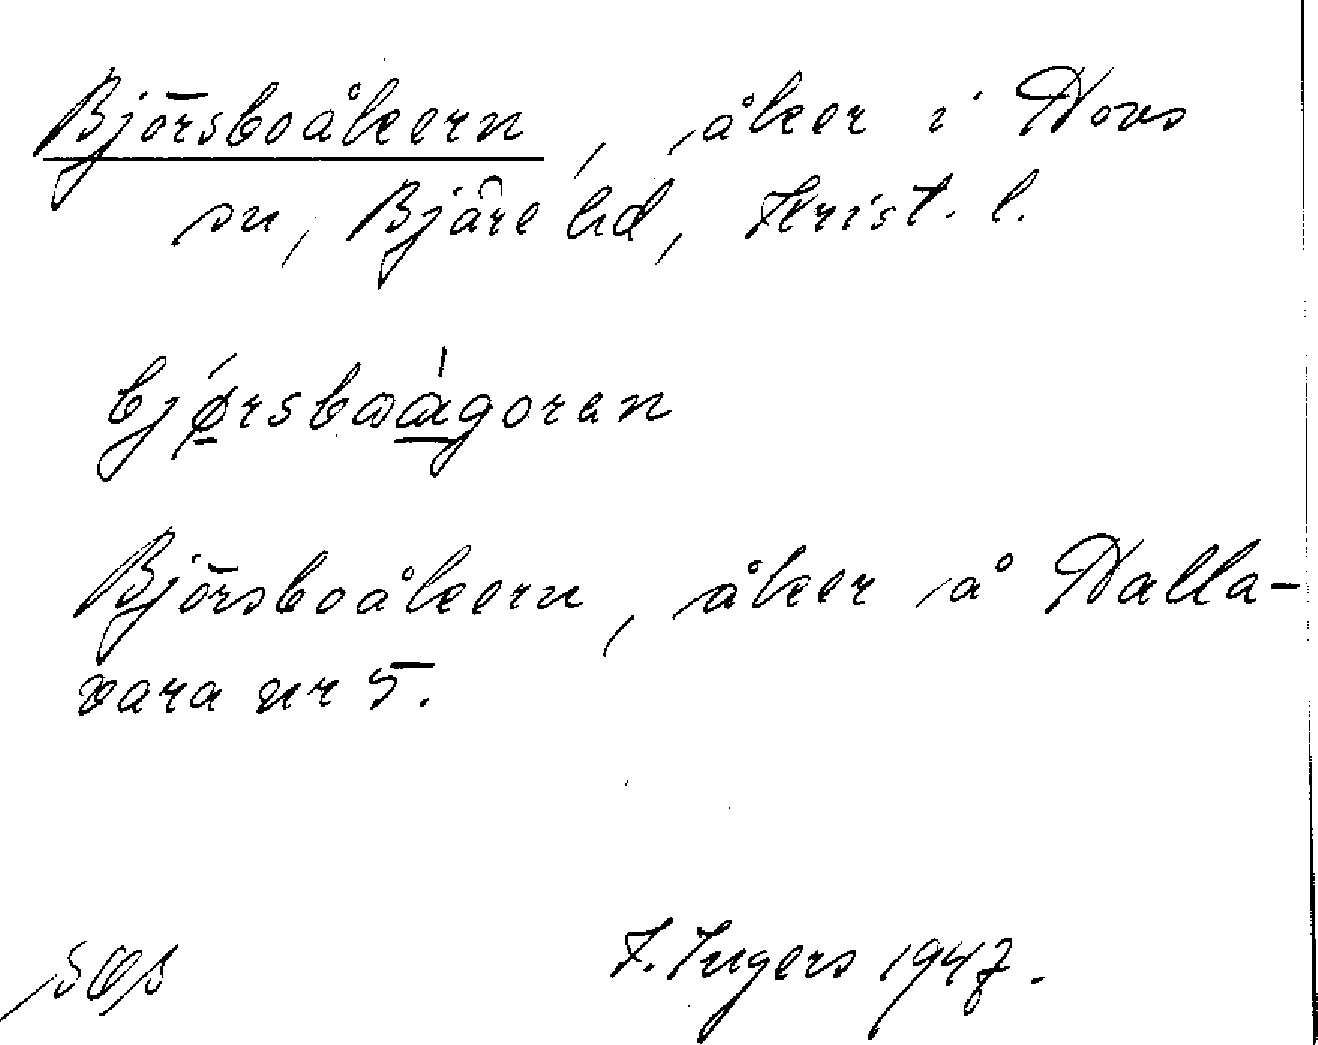 Björsboåkern, åker i Hovs
sn, Bjäre hd, Krist. l.
bjø̱rsbωα̱goren
Björsboåkern, åker å Halla-
vara nr 5.
I. Ingers 1947.